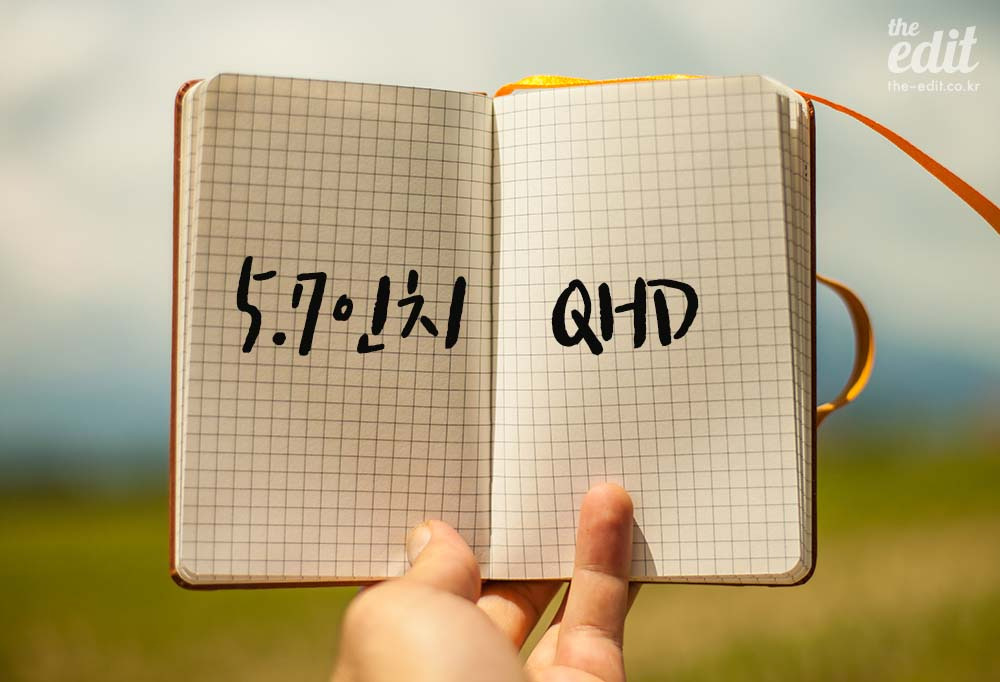 the
edit
the-edit.co.kr
5.7인치 QHD